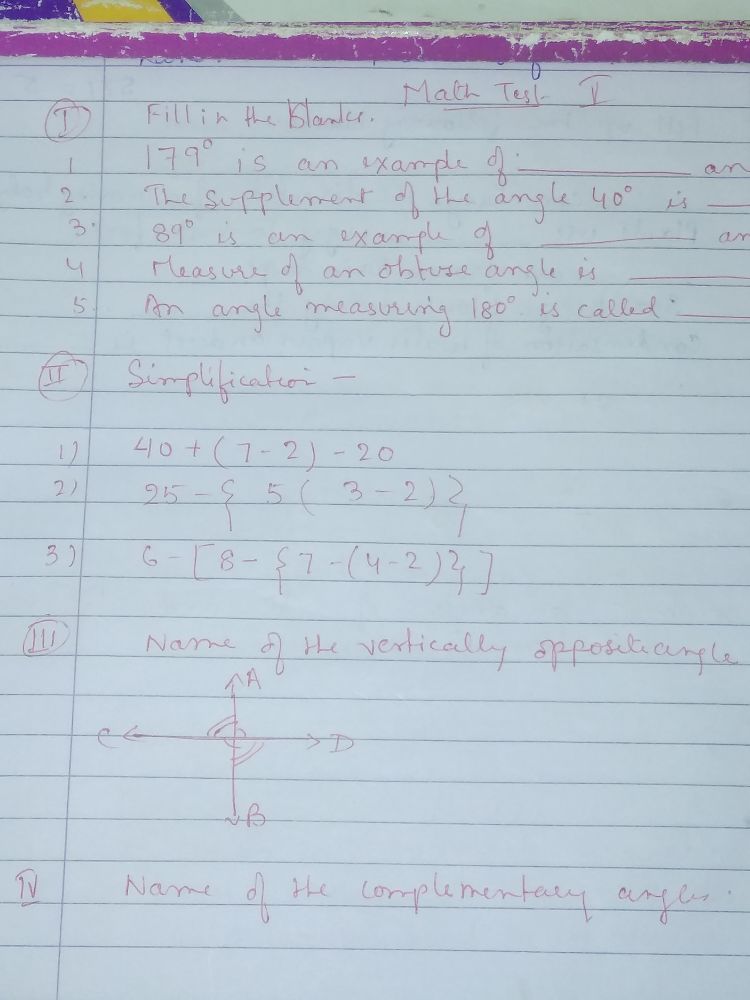 Math Test V
I Fill in the Blanks.
1 179° is an example of ________ an
2. The supplement of the angle 40° is __
3. 89° is an example of ________ an
4 Measure of an obtuse angle is ______
5. An angle measuring 180° is called ____
II Simplification –
1) 40 + (7 - 2) - 20
2) 25 - { 5 ( 3 - 2 ) }
3) 6 - [ 8 - { 7 - ( 4 - 2 ) } ]
III Name of the vertically opposite angle
A
C D
B
IV Name of the complementary angles.